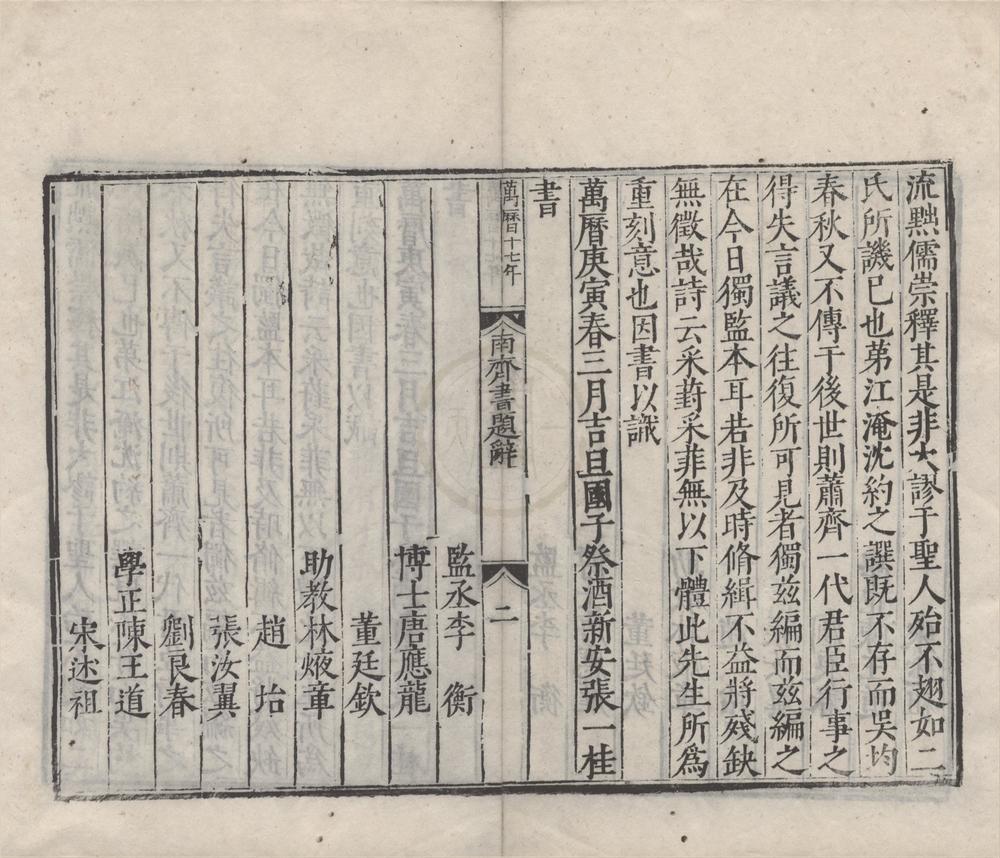 流黜儒崇釋其是非大謬于聖人殆不翅如二
氏所譏已也弟江淹沈約之譔既不存而吳均
春秋又不傳于後世則蕭齊一代君臣行事之
得失言議之往復所可見者獨兹編而兹編之
在今日獨監本耳若非及時脩緝不益將殘缺
無徵哉詩云采葑采菲無以下體此先生所爲
重刻意也因書以識
萬曆庚寅春三月吉旦國子祭酒新安張一桂
書
萬曆十七年
南齊書題辭
二
監丞李　衡
博士唐應龍
董廷欽
助教林焲章
趙　㘦
張汝翼
劉良春
學正陳王道
宋述祖